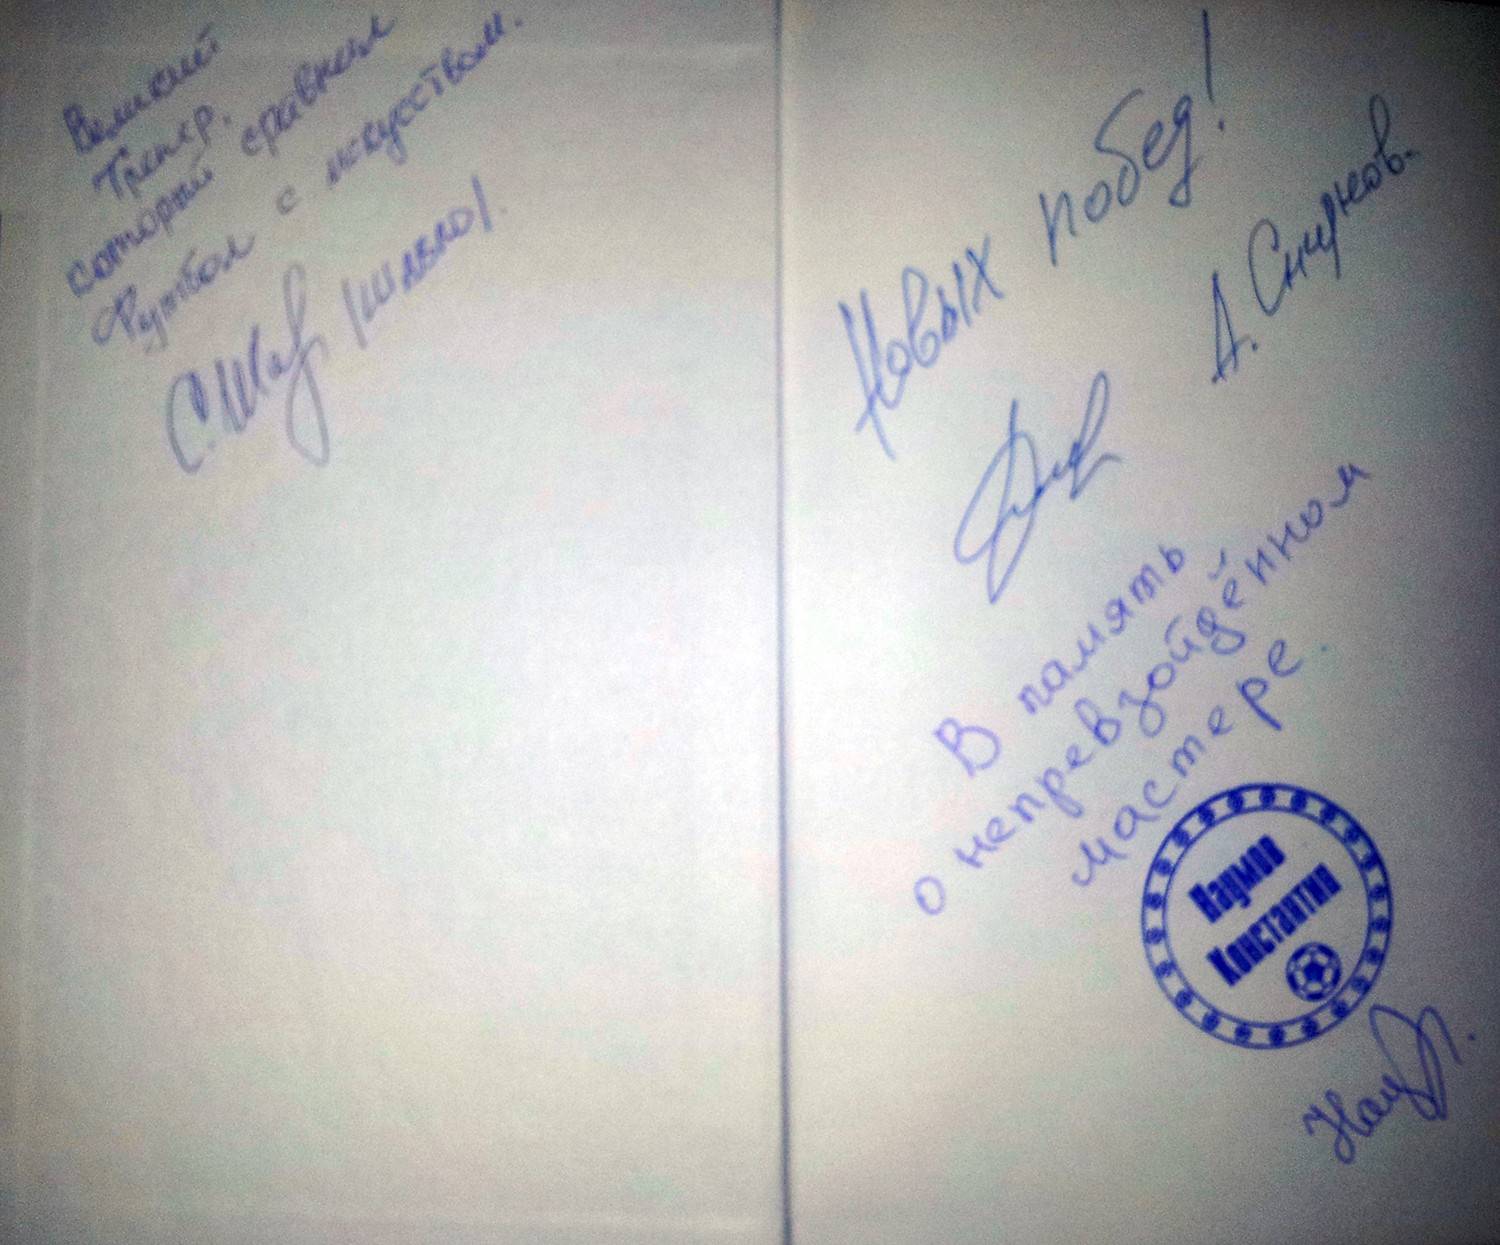 Великий
Тренер,
который сравнил
Футбол с искусством.
С. Шав
Новых побед!
А. Смирнов.
В память
о непревзойдённом
мастере.
Наумов
Константин